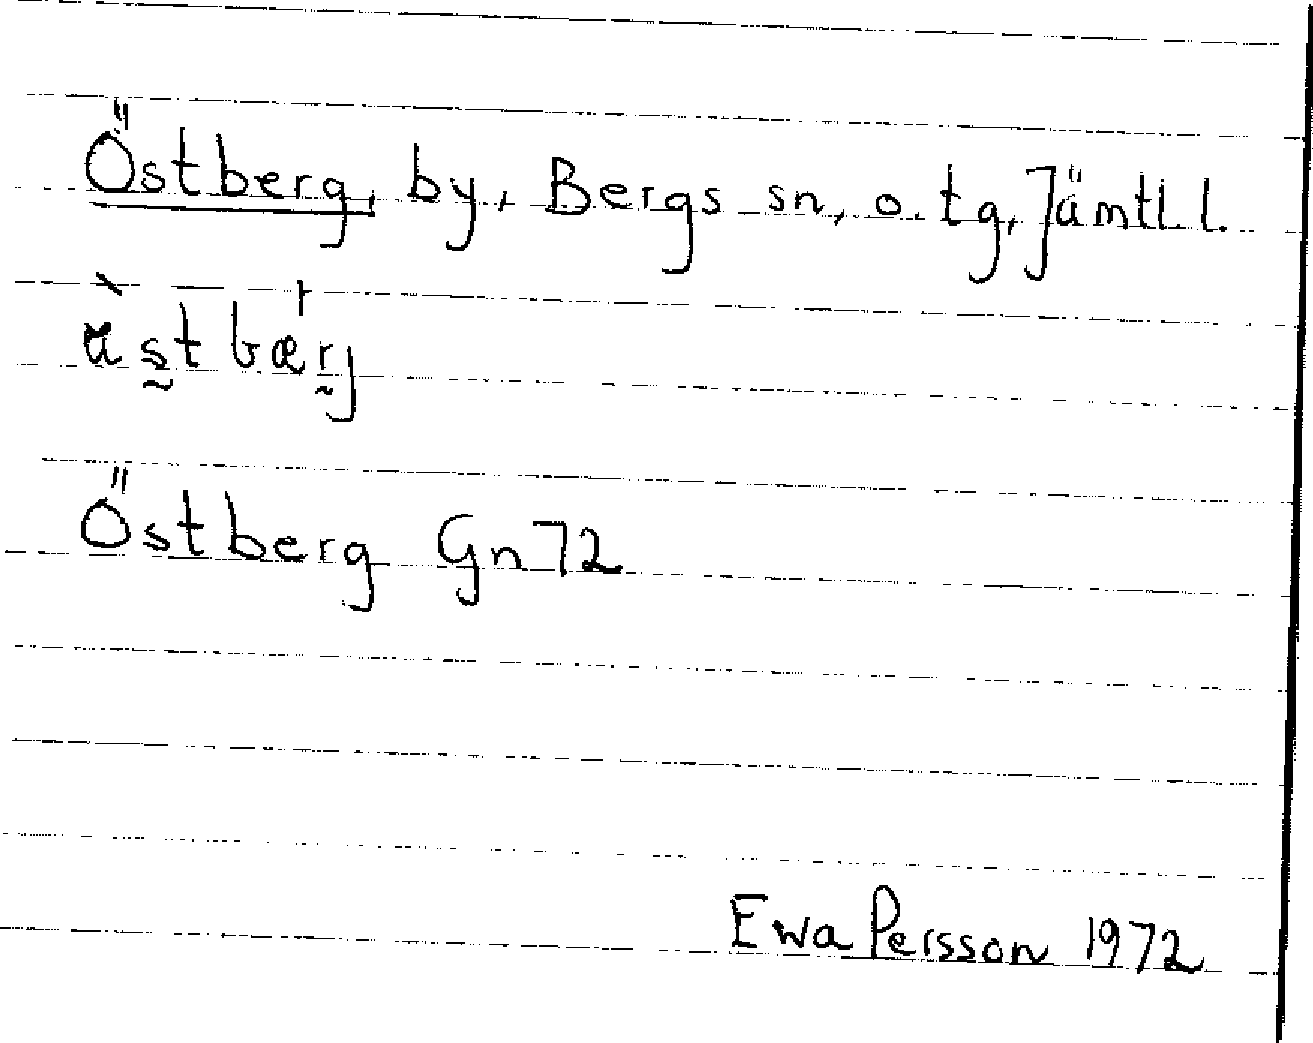 Östberg, by, Bergs sn, o. tg, Jämtl. l.
Östberg Gn 72
Ewa Persson 1972